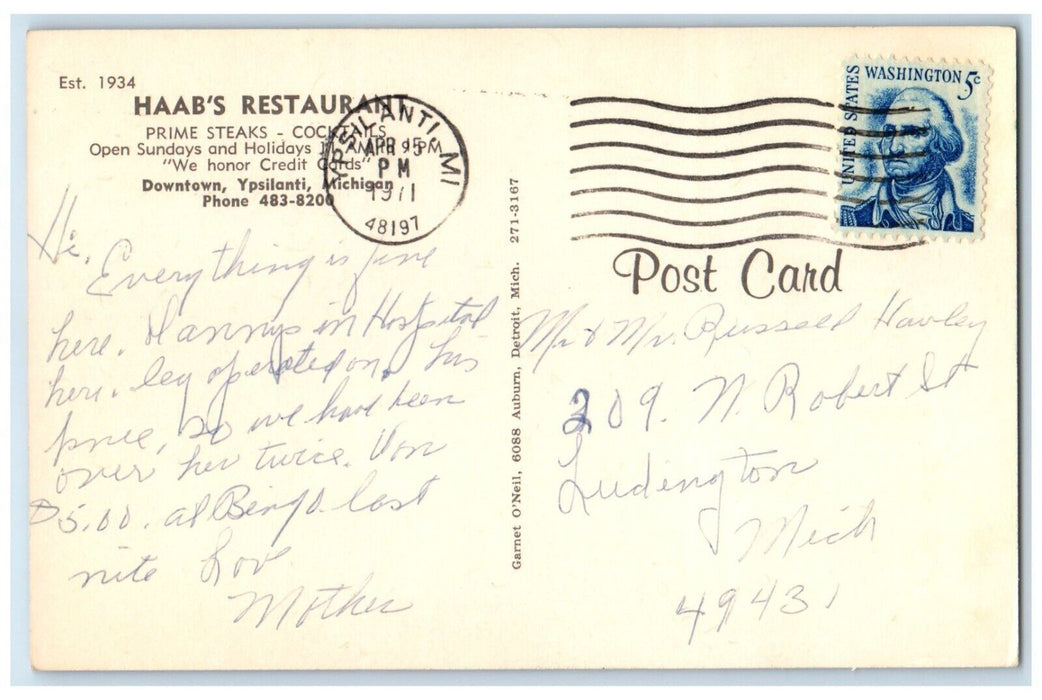 Est. 1934
HAAB'S RESTAURANT
PRIME STEAKS - COCKTAILS
Open Sundays and Holidays 11 AM - 9 PM
"We honor Credit Cards"
Downtown, Ypsilanti, Michigan
Phone 483-8200
YPSILANTI, MI
APR 5
PM
1971
48197
UNITED STATES
WASHINGTON 5c
Post Card
Garnet O'Neil, 6088 Auburn, Detroit, Mich. 271-3167
Hi. Everything is fine
here. in Hospital
here. leg operated on, his
so we have been
over her twice. Won
$5.00. at Bingo last
nite Love
Mother
Mr & Mr. Russell Hawley
209. N. Robert St
Ludington
Mich
49431